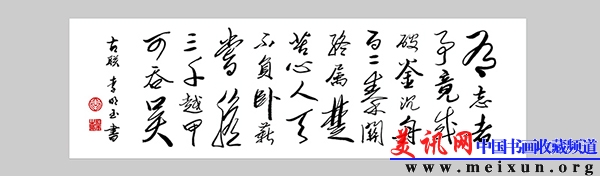 有志者
事竟成
破釜沉舟
百二秦關
終属楚
苦心人天
不負卧薪
嘗膽
三千越甲
可吞吴
古联 李玉書
美讯网 中国书画收藏频道
www.meixun.org